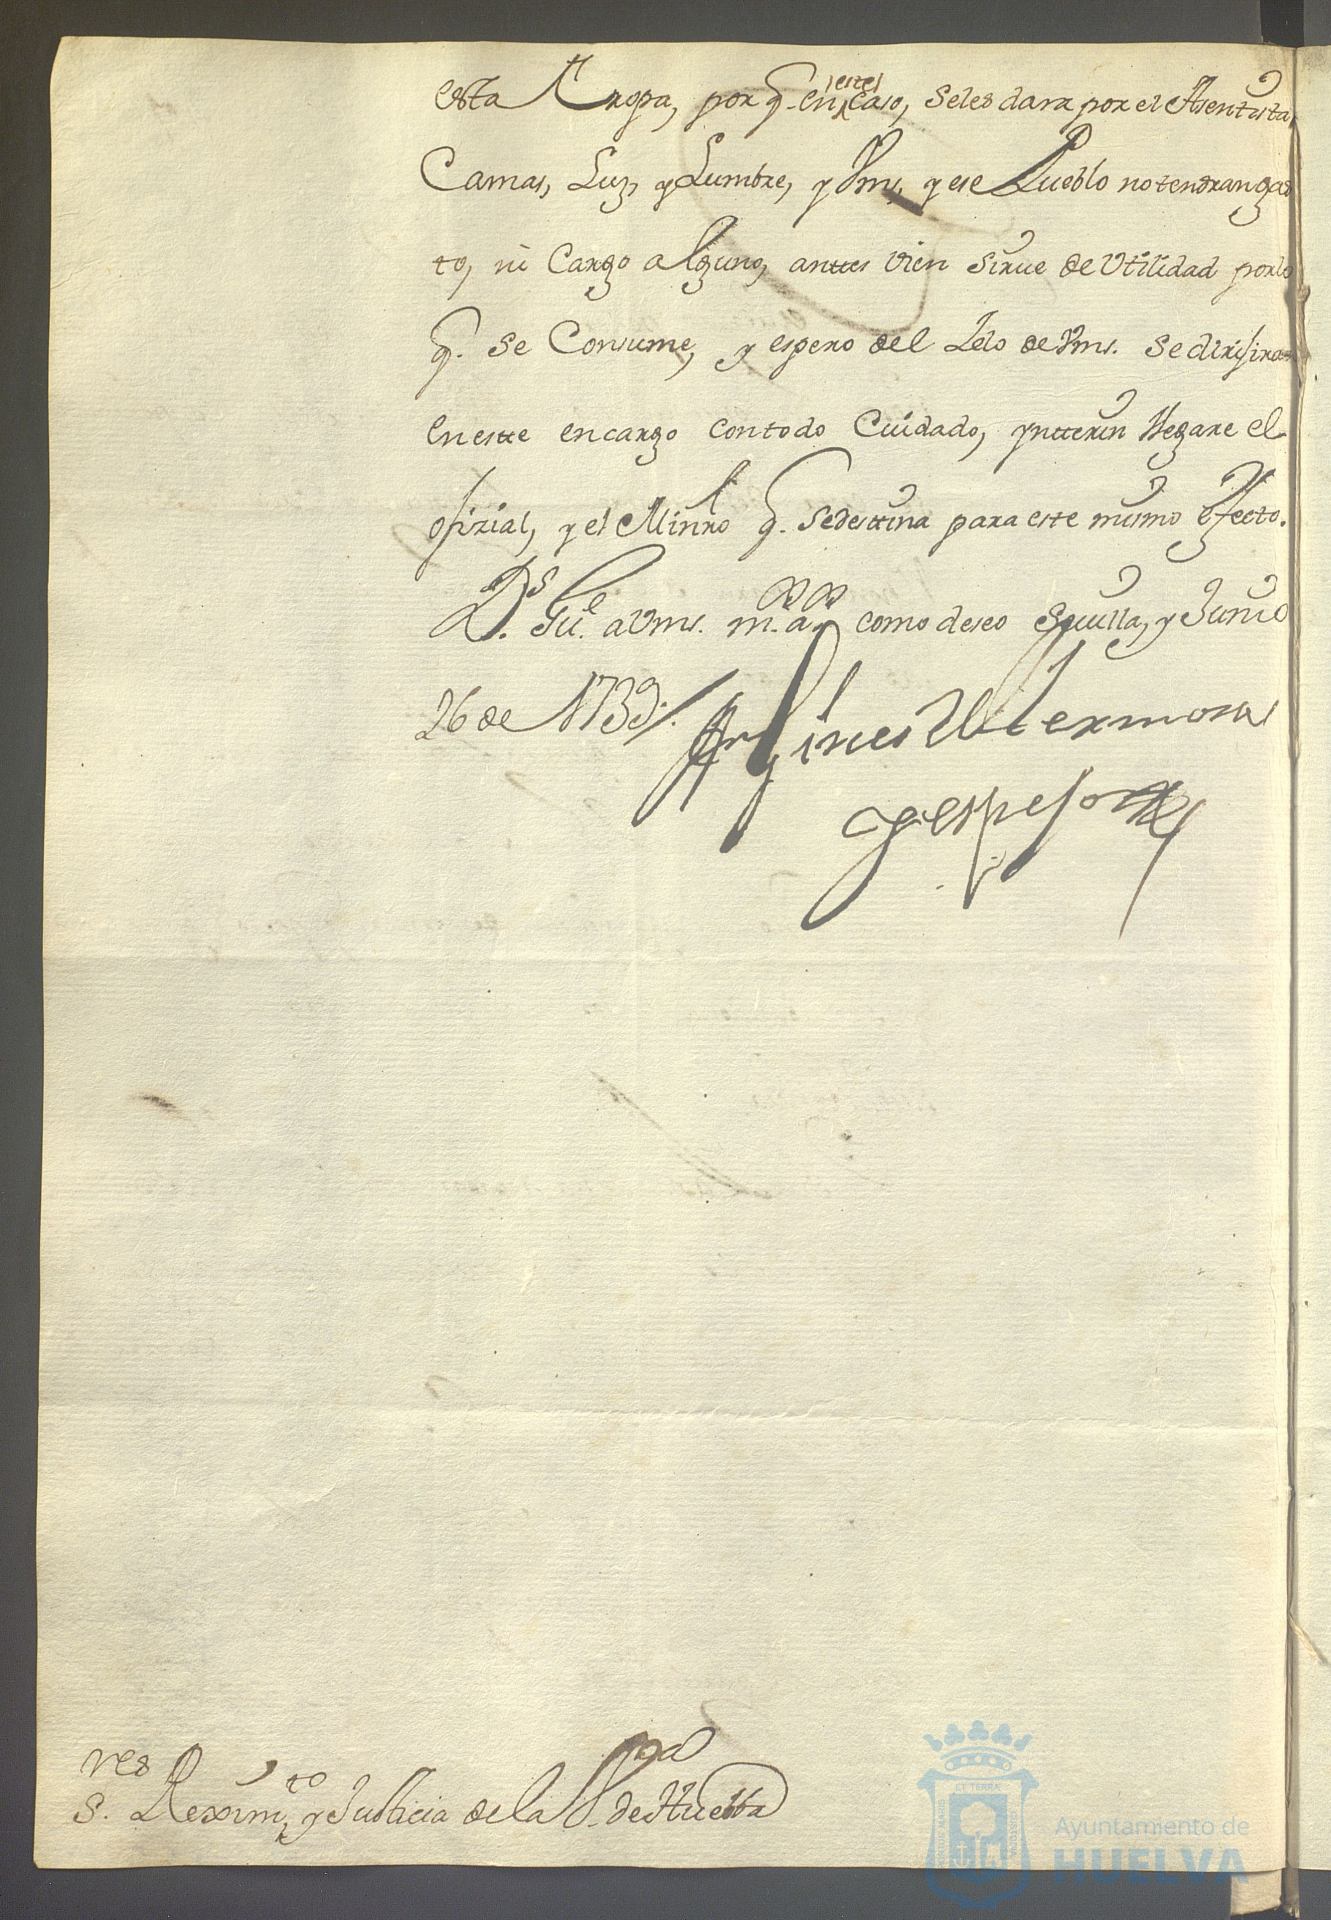 esta tropa, por q. en este Caso, seles dara por el Asentista,
Camas, Luz, y Lumbre, y Vms, y ese Pueblo notendran gas
to, ni Cargo alguno, antes vien sirue de Vtilidad porlo
q. se Consume, y espero del Zelo de Vms. se dirijiran
en este encargo contodo Cuidado, ynterin llegare el
ofizial, y el Minro q. sedestina para este mismo efecto.
Ds. Gue. aVms. ms. as. como deseo Seuilla, y Junio
26 de 1739/.
Gines de Hermosa
y espejo
S.res Reximto, y Justicia de la Va. de Huelba
ET TERRÆ
Ayuntamiento de
HUELVA